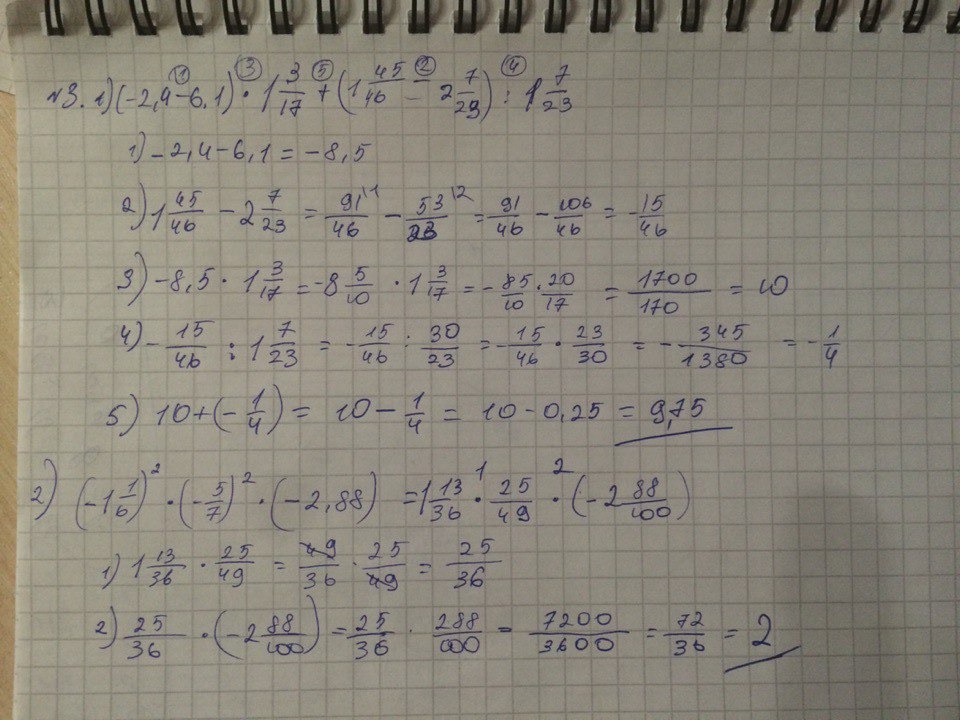 №3. 1) (-2,4-6,1) · 1 3/17 + (1 45/46 - 2 7/23) : 1 7/23 ① ③ ⑤ ② ④
1) -2,4-6,1=-8,5
2) 1 45/46 - 2 7/23 = 91/46 \1 - 53/23 \2 = 91/46 - 106/46 = -15/46
3) -8,5 · 1 3/17 = -8 5/10 · 1 3/17 = -85/10 · 20/17 = 1700/170 = 10
4) -15/46 : 1 7/23 = -15/46 : 30/23 = -15/46 · 23/30 = -345/1380 = -1/4
5) 10+(-1/4) = 10 - 1/4 = 10 - 0,25 = 9,75
2) (-1 1/6)² · (-5/7)² · (-2,88) = 1 13/36 ·¹ 25/49 ·² (-2 88/100)
1) 1 13/36 · 25/49 = 49/36 · 25/49 = 25/36
2) 25/36 · (-2 88/100) = 25/36 · 288/100 = 7200/3600 = 72/36 = 2